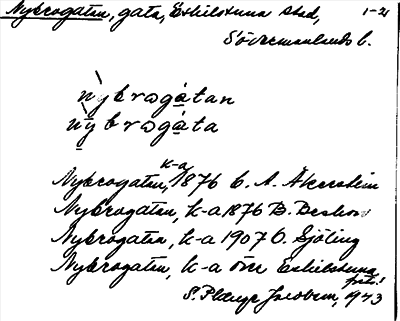 Nybrogatan, gata, Eskilstuna stad, 1-21
Södermanlands l.
nybrogatan
nybrogata
k-a
Nybrogatan, 1876 C. A. Åkerstein
Nybrogatan, k-a 1876 B.
Nybrogatan, k-a 1907 O. Sjöling
Nybrogatan, k-a över Eskilstuna
1943